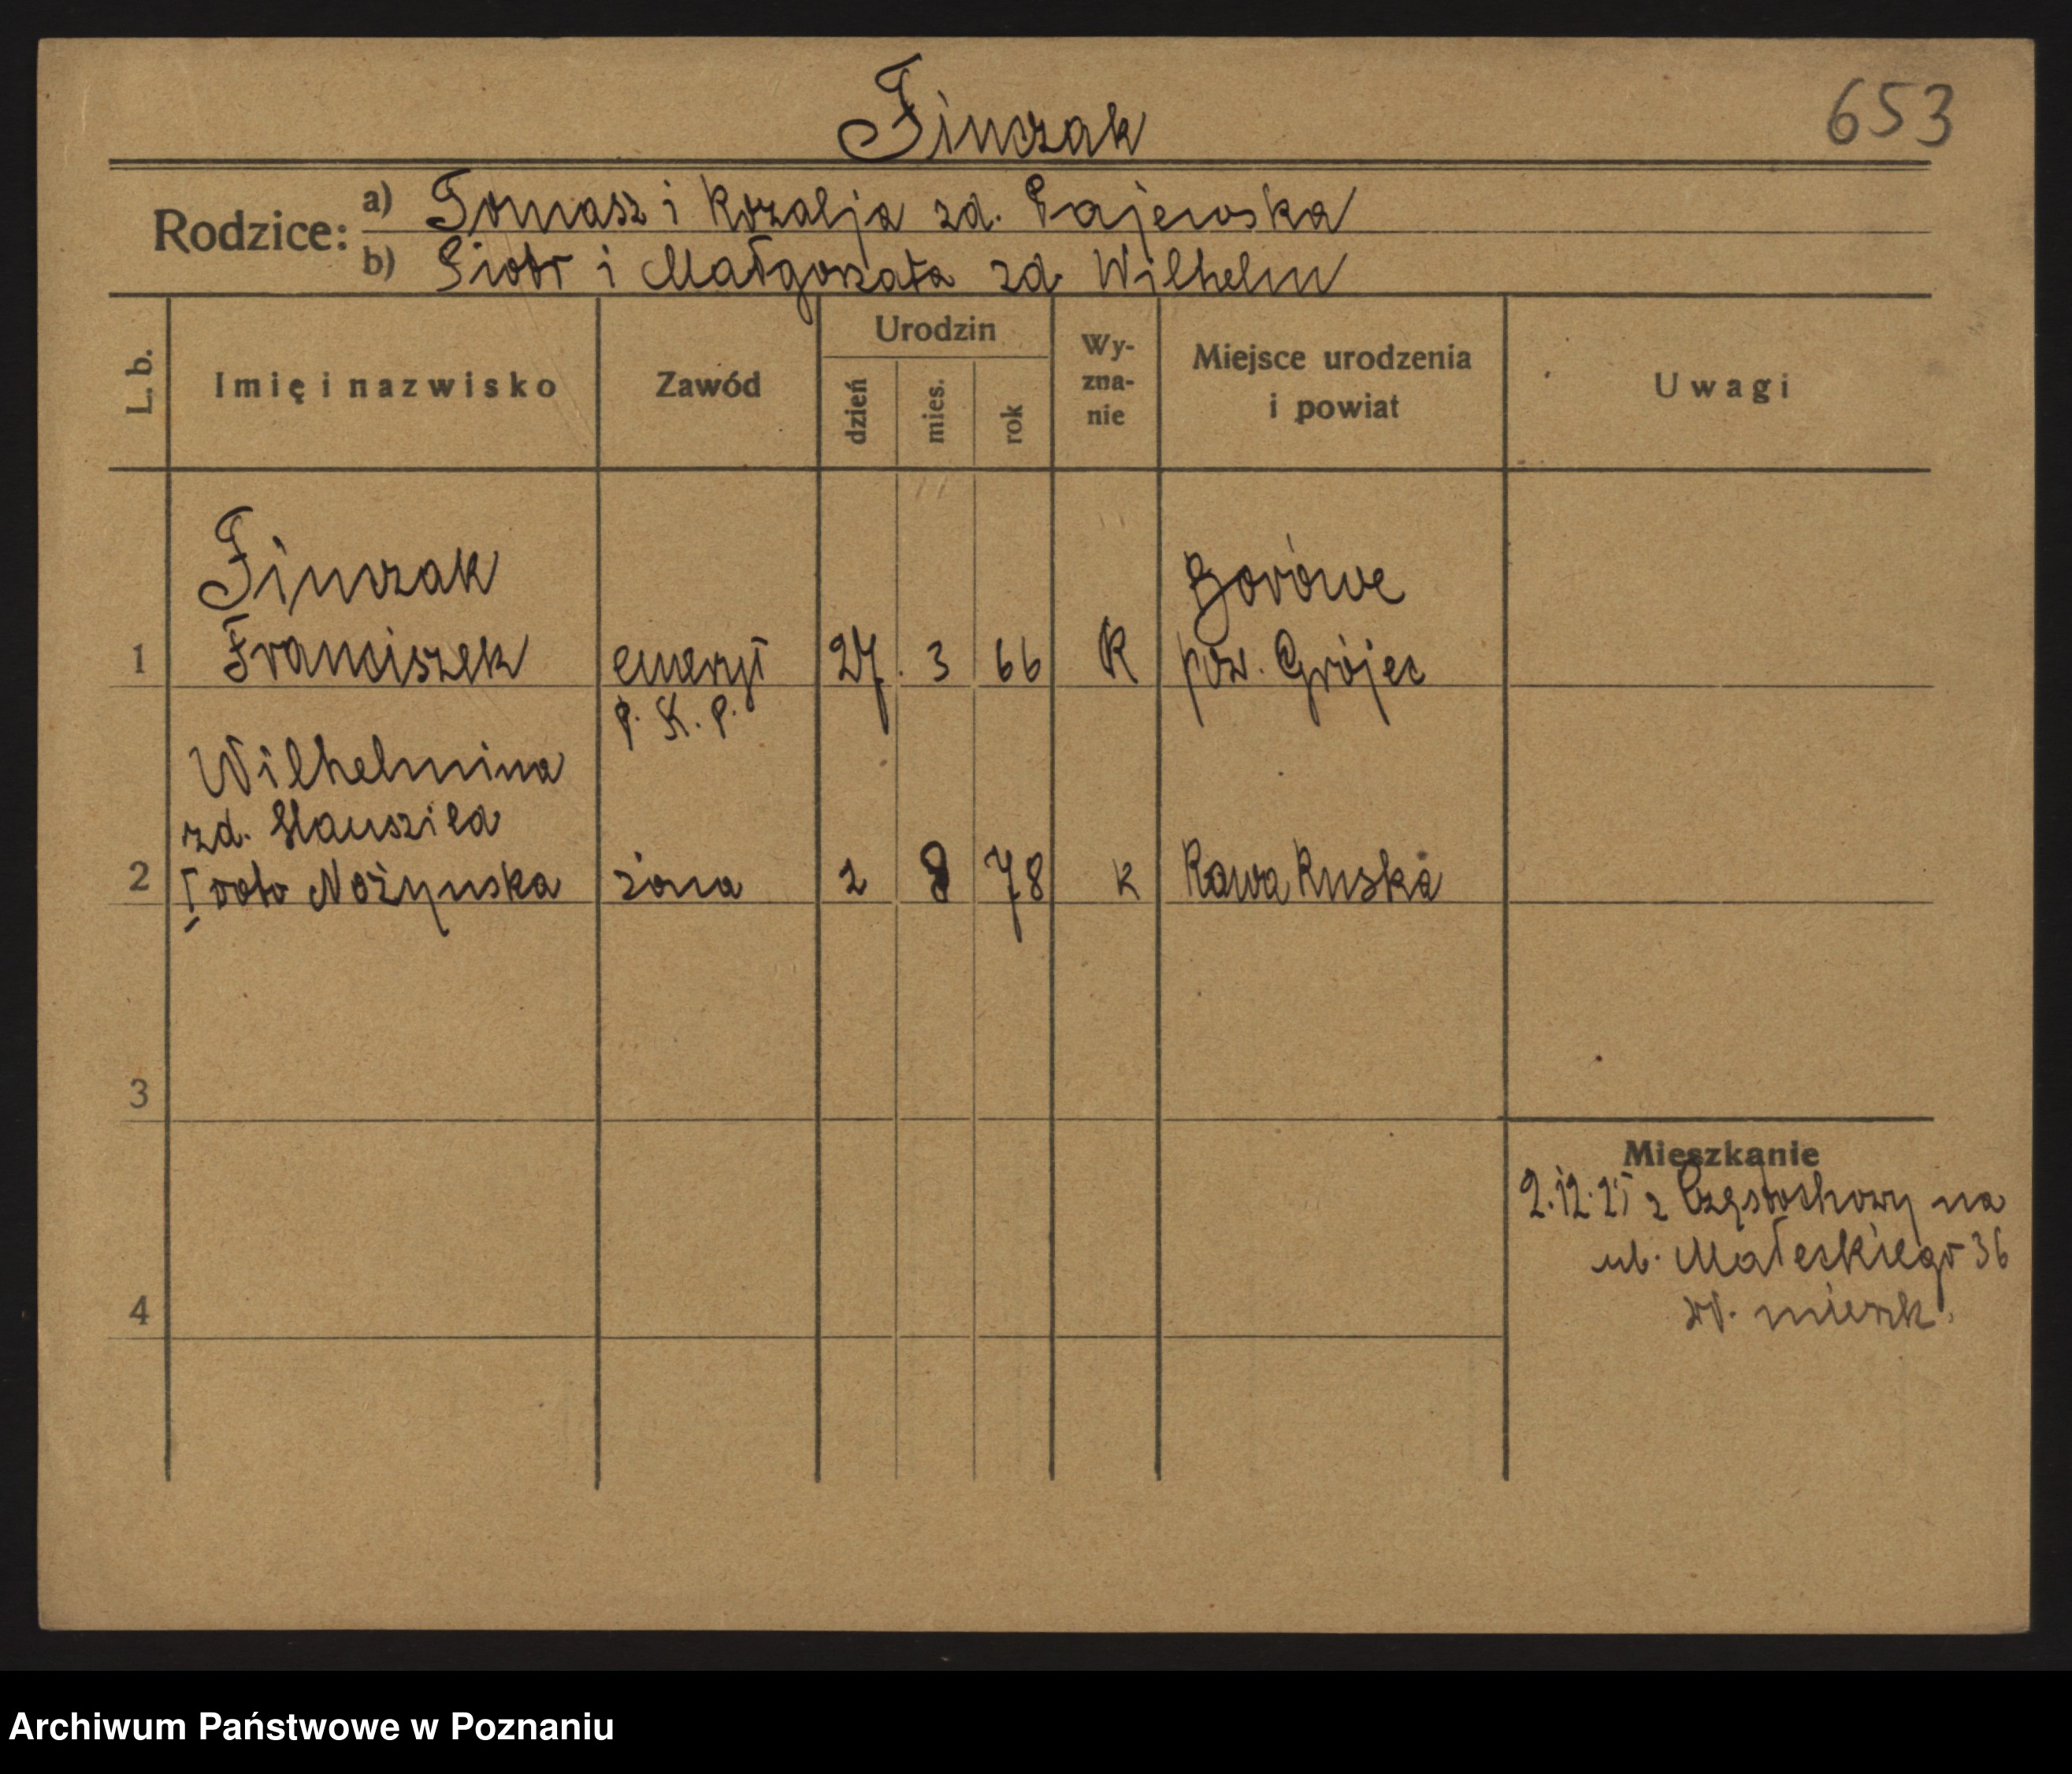 653
Finczak
Rodzice:
a) Tomasz i Rozalja zd. Gajewska
b) Piotr i Małgorzata zd. Wilhelm
L. b.
Imię i nazwisko
Zawód
Urodzin
dzień
mies.
rok
Wy-
zna-
nie
Miejsce urodzenia
i powiat
Uwagi
Finczak
Borówe
1 Franciszek emeryt 27. 3 66 R pow. Grójec
P. K. P.
Wilhelmina
zd.
2 I voto Nożyńska żona 2 8 78 k Rawa Ruska
3
Mieszkanie
2.12. z Częstochowy na
ul. Małeckiego 36
4
mieszk.
Archiwum Państwowe w Poznaniu